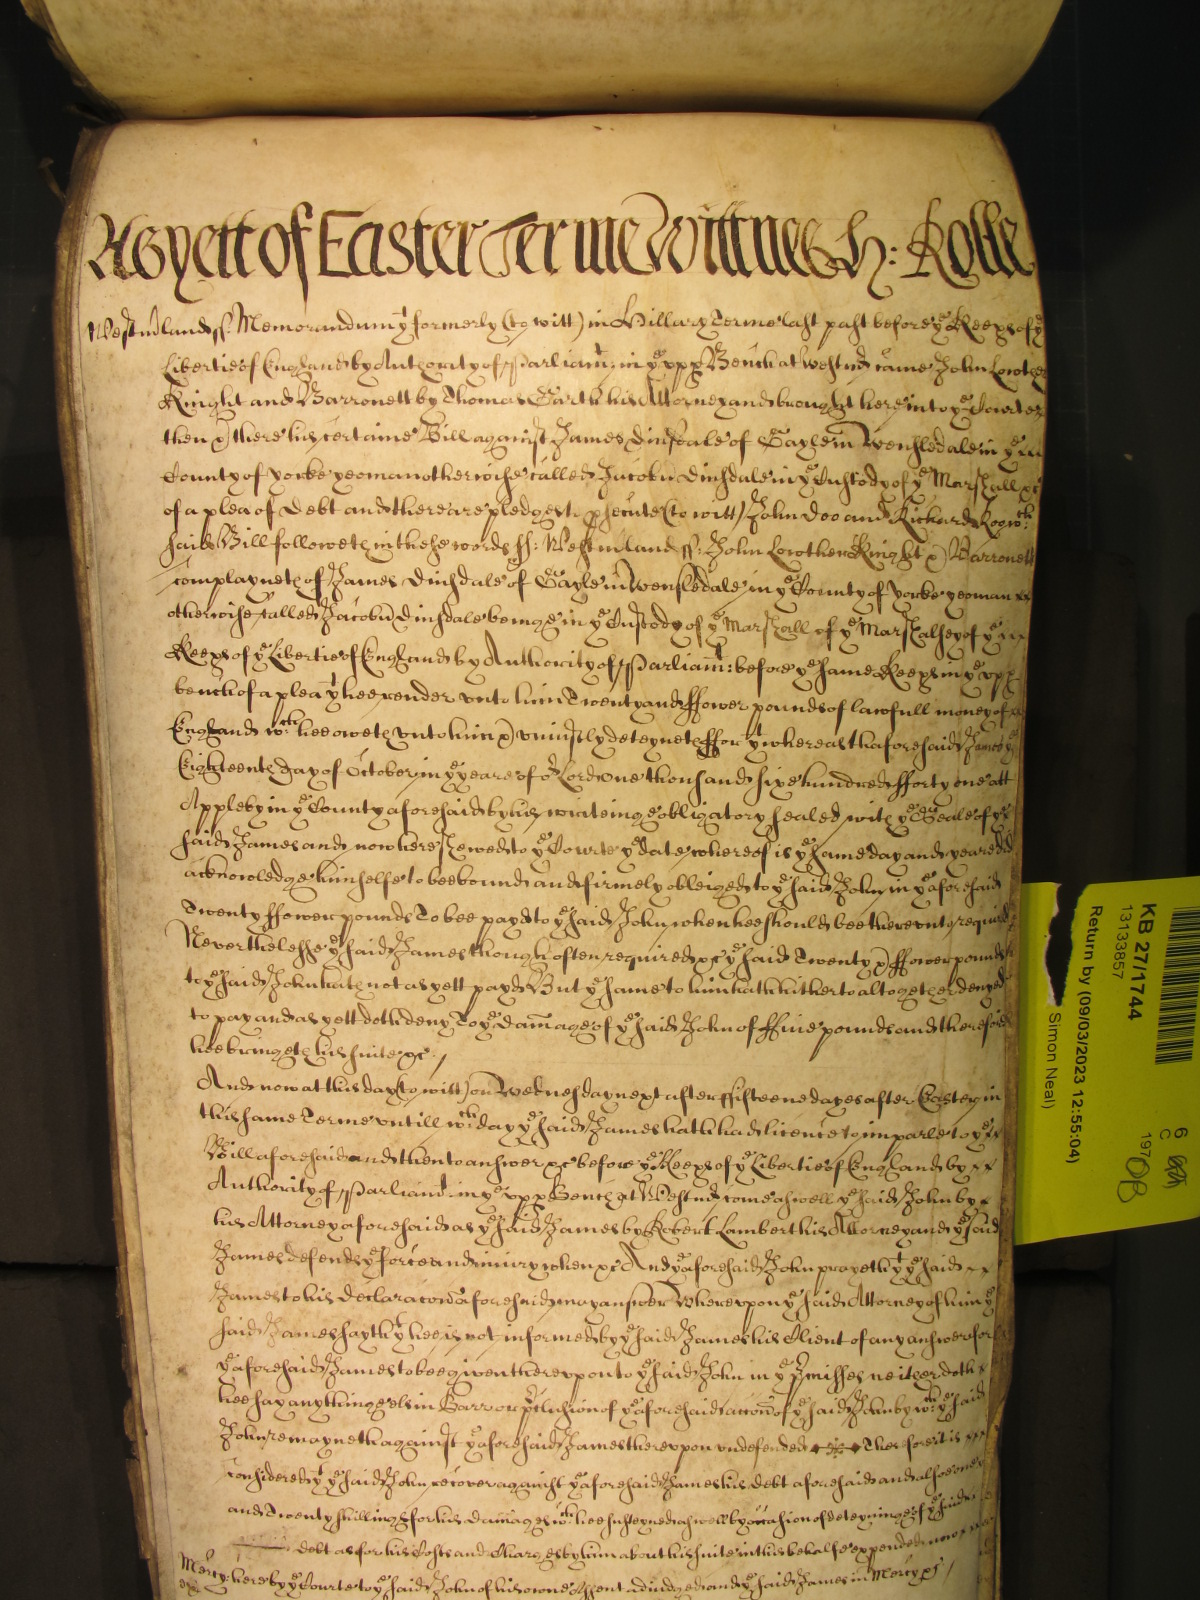 As yett of Easter Terme Wittnes H: Rolle
Westmland ss. Memorandum yt formerly (to witt) in Hillary Terme last past before ye Keeps of ye
Liberties of England by Authority of Parliamt: in ye upp Bench at Westm came John Lowther
Knight and Barronett by Thomas Garth his Attorney and brought here into ye Courte
then & there his certaine Bill against James Dinsdale of Gayle in Wensledale in ye
County of Yorke yeoman otherwise called Jacobu Dinsdale in ye Custody of ye Marshall &c
of a plea of Debt and there are pledges to psecute (to witt) John Doo and Richard Roo wch
said Bill followeth in these words ss: Westmland ss: John Lowther Knight & Barronett
complayneth of James Dinsdale of Gayle in Wensledale in ye County of Yorke yeoman
otherwise called Jacobu Dinsdale beinge in ye Custody of ye Marshall of ye Marshalsey of ye
Keeps of ye Liberties of England by Authority of Parliamt: before ye same Keeps in ye upp
bench of a plea yt hee render unto him Twenty and ffower pounds of lawfull money of
England wch hee oweth unto him & uniustly deteyneth ffor yt whereas thaforesaid James ye
Eighteenth day of October in ye yeare of or Lord one thousand sixe hundred fforty one att
Appleby in ye County aforesaid by his writeinge obligatory sealed with ye Seale of ye
said James and now here shewed to ye Courte ye date whereof is ye same day and yeare did
acknowledge himselfe to bee bound and firmely obleiged to ye said John in ye aforesaid
Twenty ffower pounds To bee payd to ye said John when hee should bee thereunto required
Neverthelesse ye said James though often required &c ye said Twenty & ffower pounds
to ye said John hath not as yett payd But ye same to him hath hitherto altogether denyed
to pay and as yett doth deny To ye damage of ye said John of ffiue pounds and therefore
hee bringeth his suite &c.
And now at this day (to witt) on Wednesday next after ffifteene dayes after Easter in
this same Terme untill wch day ye said James hath had licence to imparle to ye
Bill aforesaid and then to answer &c before ye Keeps of ye Liberties of England by
Authority of Parliamt in ye upp Bench at Westm come aswell ye said John by
his Attorney aforesaid as ye said James by Robert Lambert his Attorney and ye said
James defends ye force and iniury when &c And ye aforesaid John prayeth yt ye said
James to his declaracon aforesaid may answer Whereupon ye said Attorney of him ye
said James sayth yt hee is not informed by ye said James his Client of any answer for
ye aforesaid James to bee given thereupon to ye said John in ye pmisses neither doth
hee say any thinge els in Barr or pclusion of ye aforesaid accon of ye said John by wch ye said
John remayneth against ye aforesaid James thereupon undefended Therefore it is
considered yt ye said John recover against ye aforesaid James his debt aforesaid and alsoe one
and Twenty shillings for his damages wch hee susteyned aswell by occasion of deteyninge of ye said
debt as for his Costs and Charges by him about his suite in this behalfe expended now
Mercy. here by ye Courte to ye said John of his owne Assent adiudged and ye said James in Mercy &c
KB 27/1744
13133857
Return by (09/03/2023 12:55:04)
Simon Neal)
6
C
197